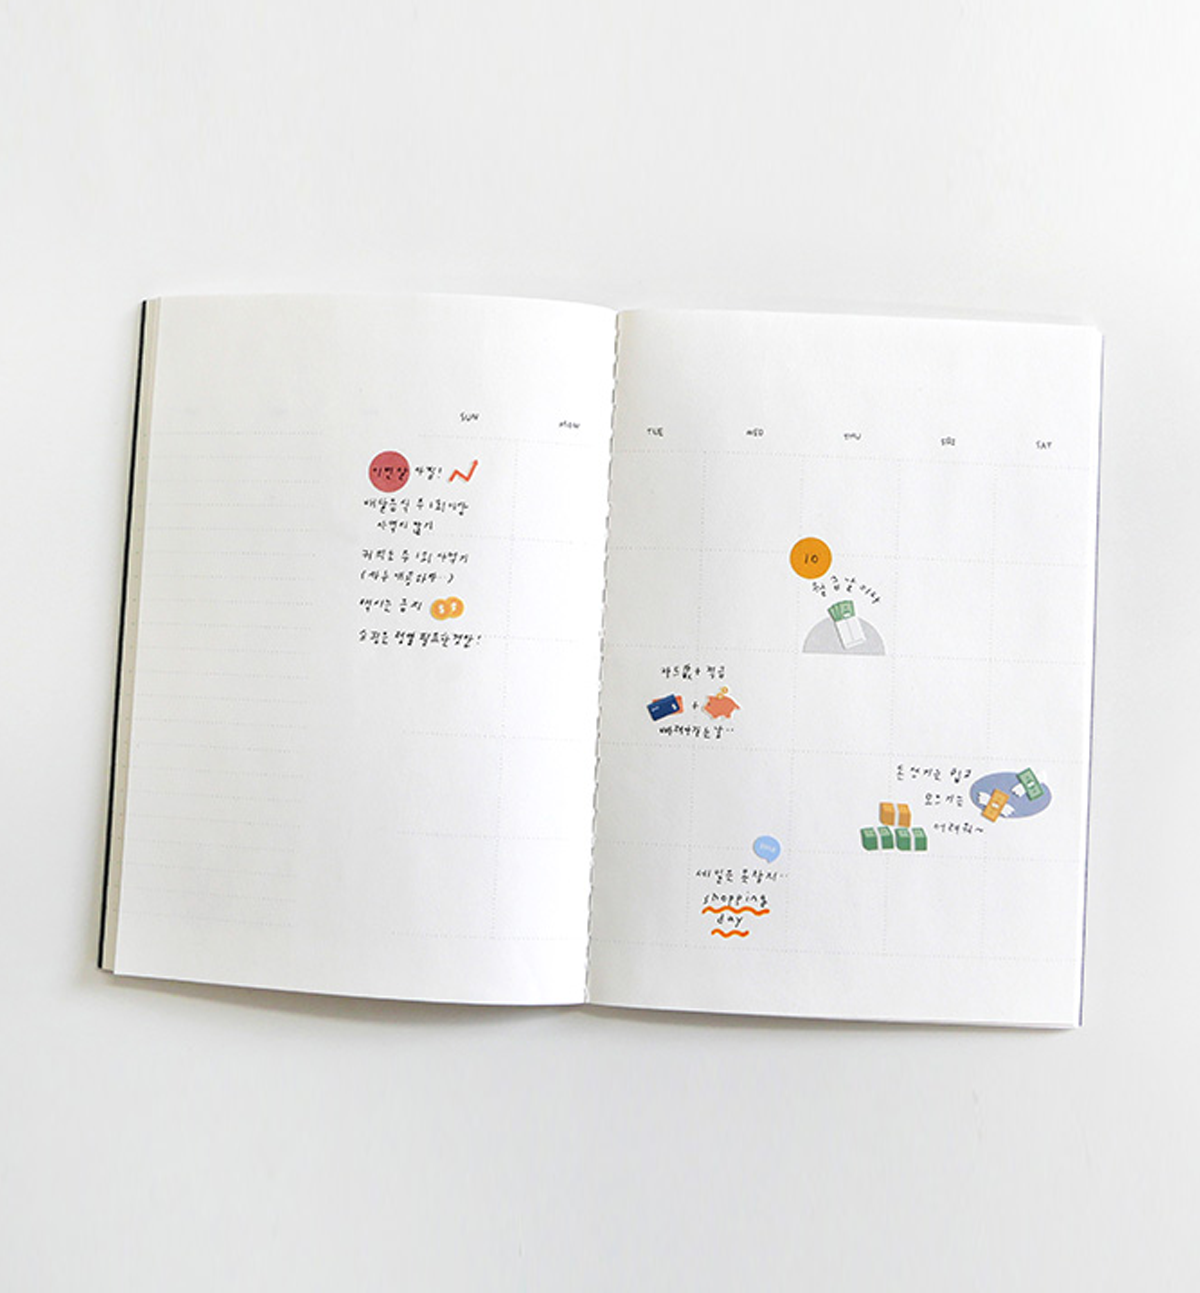 SUN
MON
TUE
WED
THU
FRI
SAT
이번달 다짐!
배달음식 주 1회 이상
시키지 않기
커피는 주 1회 사먹기
(자주 애용하자..)
택시는 금지
쇼핑은 정말 필요한것만!
10
월급날이다
카드값 + 적금
+
빠져나가는 날..
돈 쓰기는 쉽고
모으기는
어려워~
세일은 못참지..
shopping
day